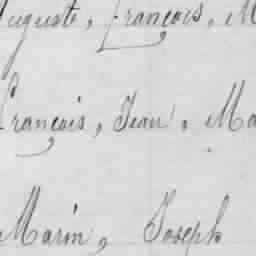 Auguste, François, M
François, Jean, Ma
Marin, Joseph